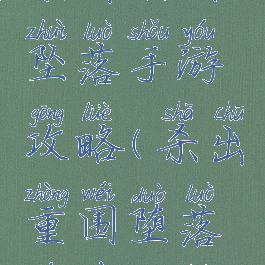 zhuì luò shǒu yóu
坠落手游
gōng lüè shā chū
攻略(杀出
zhòng wéi duò luò
重围堕落